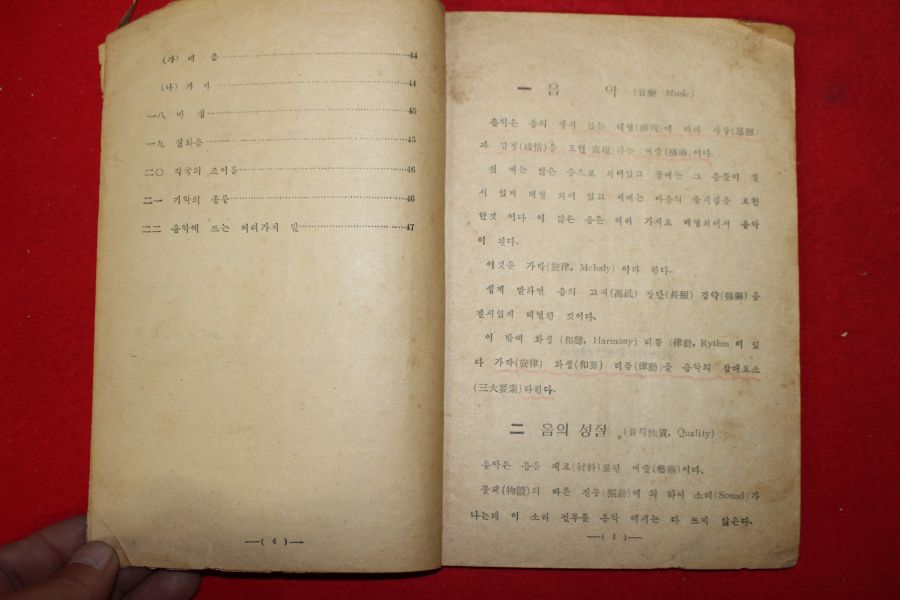 (가) 제 음 44
(나) 가 기 44
一八 박 절 45
一九 실화음 45
二〇 각국의 조이름 46
二一 기악의 종류 46
二二 음악에 쓰는 여러가지 말 47
—( 4 )—
一 음 악 (音樂 Music)
음악은 음의 질서 있는 배열(排列)에 따라 사상(思想)
과 감정(感情)을 표현 表現)하는 예술(藝術)이다.
첫 째는 많은 음으로 되어있고 둘째는 그 음들이 질
서 있게 배열 되어 있고 세째는 마음의 움직임을 표현
한것 이다 이 많은 음은 여러 가지로 배열되어서 음악
이 된다.
이것을 가락(旋律, Melody) 이라 한다.
쉽게 말하면 음의 고저(高低) 장단(長短) 강약(强弱)을
질서있게 배열한 것이다.
이 밖에 화성 (和聲, Harmony) 리듬 (律動, Rythm 이 있
다 가락(旋律) 화성(和聲) 리듬(律動)을 음악의 삼대요소
(三大要素)라한다.
二 음의 성질 (音의性質, Quality)
음악은 음을 재료(材料)로한 예술(藝術)이다.
물체(物體)의 빠른 진동(振動)에 의 하여 소리(Sound)가
나는데 이 소리 전부를 음악 에서는 다 쓰지 않은다.
—( 1 )—